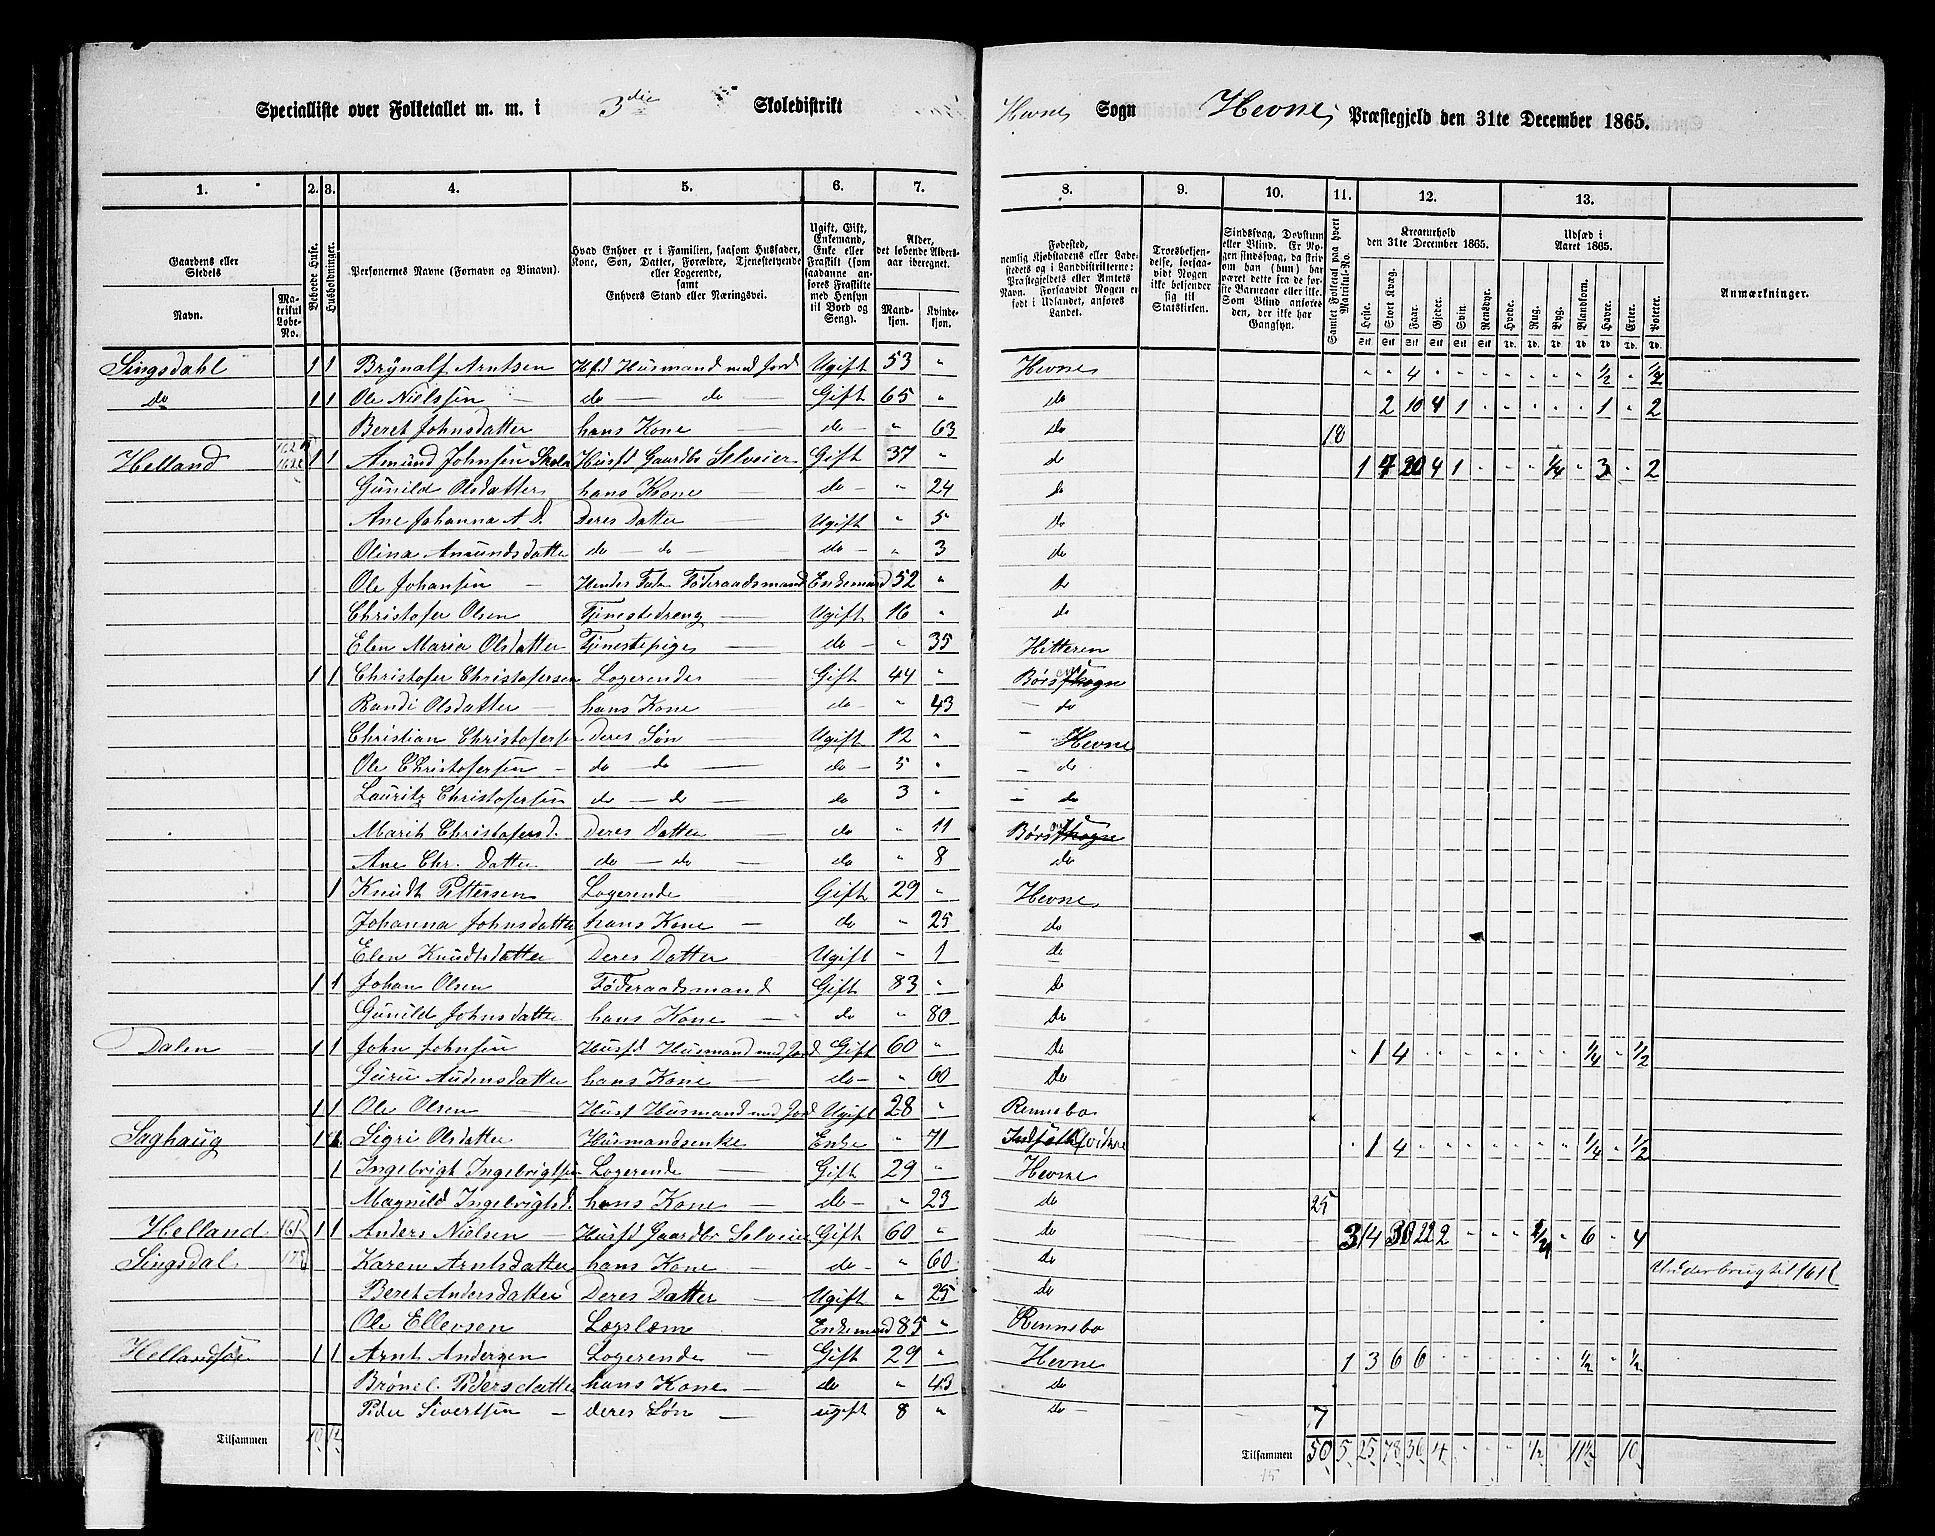 Specialliste over Folketallet m. m. i 3die Skoledistrikt Hevne Sogn Hevne Præstegjeld den 31te December 1865.
1. 2. 3. 4. 5. 6. 7. 8. 9. 10. 11. 12. 13.
Gaardens eller Stedets Navn. Matrikul Løbe-No. Beboede Huse. Husholdninger. Personernes Navne (Fornavn og Vinavn). Hvad Enhver er i Familien, saasom Husfader, Kone, Søn, Datter, Forældre, Tjenestetyende eller Logerende, samt Enhvers Stand eller Næringsvei. Ugift, Gift, Enkemand, Enke eller Fraskilt (som saadanne anføres Fraskilte med Hensyn til Bord og Seng). Alder, det løbende Alders-aar iberegnet. Mandkjøn. Kvindekjøn. Fødested, nemlig Kjøbstadens eller Ladestedets og i Landdistrikterne: Præstegjeldets eller Amtets Navn. Forsaavidt Nogen er født i Udlandet, anføres Landet. Troesbekjendelse, forsaavidt Nogen ikke bekjender sig til Statskirken. Sindssvag, Døvstum eller Blind. Gamlet Folketal paa hvert Matrikul-No. Kreaturhold den 31te December 1865. Heste. Stort Kvæg. Faar. Gjeder. Svin. Rensdyr. Udsæd i Aaret 1865. Hvede. Rug. Byg. Blandkorn. Havre. Erter. Poteter. Anmærkninger.
Singsdahl 1 1 Brynalf Arntsen Hsfd Husmand med Jord Ugift 53 " Hevne 4 1/2 1/2
do 1 1 Ole Nielssen do do Gift 65 " do 2 10 4 1 1 2
Beret Johnsdatter hans Kone do " 63 do 18
Helland 1 1 Amund Johnsen Husfd Gaardbr Selveier Gift 37 " do 1 7 20 4 1 1/4 3 2
Gunild Olsdatter hans Kone do " 24 do
Ane Johanna A. D. Deres Datter Ugift " 5 do
Olina Amundsdatter do do do " 3 do
Ole Johansen Hendes Fader Føderaadsmand Enkemand 52 " do
Christofer Olsen Tjenestedreng Ugift 16 " do
Elen Maria Olsdatter Tjenestepige do " 35 Hitteren
1 1 Christofer Christofersen Logerende Gift 44 " Børs
Randi Olsdatter hans Kone do " 43 do
Christian Christofersen Deres Søn Ugift 12 " Hevne
Ole Christofersen do do do 5 " do
Lauritz Christofersen do do do 3 " do
Marit Christofersd. Deres Datter do " 11 Børs
Ane Chr. Datter do do do " 8 do
1 Knudt Pettersen Logerende Gift 29 " Hevne
Johanna Johnsdatter hans Kone do " 25 do
Elen Knudtsdatter Deres Datter Ugift " 1 do
1 1 Johan Olsen Føderaadsmand Gift 83 " do
Gunild Johnsdatter hans Kone do " 80 do
Dalen 1 1 John Johnsen Husfd Husmand med Jord Gift 60 " do 1 4 1/4 1/2
Guru Audensdatter hans Kone do " 60 do
1 1 Ole Olsen Husf Husmand med Jord Ugift 28 " Rennebo
Saghaug 1 1 Sigri Olsdatter Husmandsenke Enke " 71 1 4 1/4 1/2
1 Ingebrigt Ingebrigtsen Logerende Gift 29 " Hevne
Magnild Ingebrigtsd. hans Kone do " 23 do 25
Helland 161 1 1 Anders Nielsen Husfd Gaardbr Selveier Gift 60 " do 3 14 30 22 2 6 4
Singsdal Karen Arntsdatter hans Kone do " 60 do Underbrug til 161
Beret Andersdatter Deres Datter Ugift " 25 do
Ole Ellevsen Lægslem Enkemand 85 " Rennebo
Hellandsøe 1 1 Arnt Andersen Logerende Gift 29 " Hevne 1 3 6 6 1/2 1/2
Brønel Pedersdatter hans Kone do " 43 do
Peder Sivertsen deres Søn ugift 8 " do 7
Tilsammen 10 12 Tilsammen 50 5 25 78 36 4 1/2 11 1/2 10
15